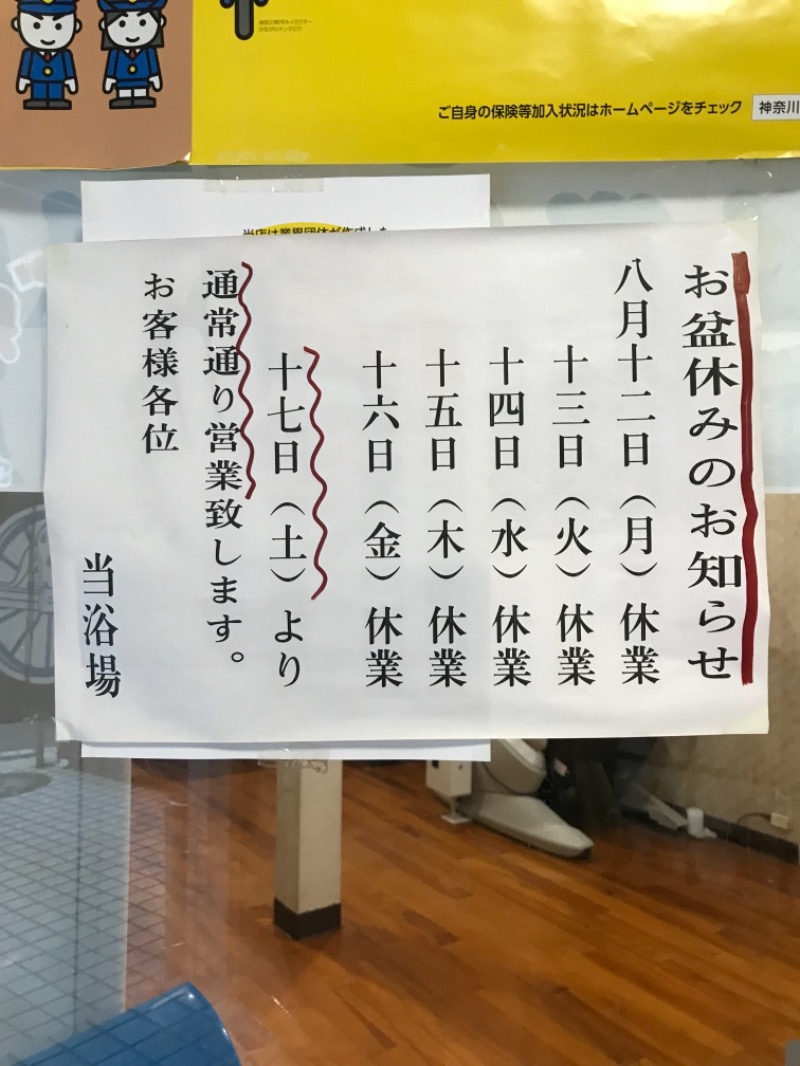 ご自身の保険等加入状況はホームページをチェック
神奈川
お盆休みのお知らせ
八月十二日（月）休業
十三日（火）休業
十四日（水）休業
十五日（木）休業
十六日（金）休業
十七日（土）より
通常通り営業致します。
お客様各位
当浴場